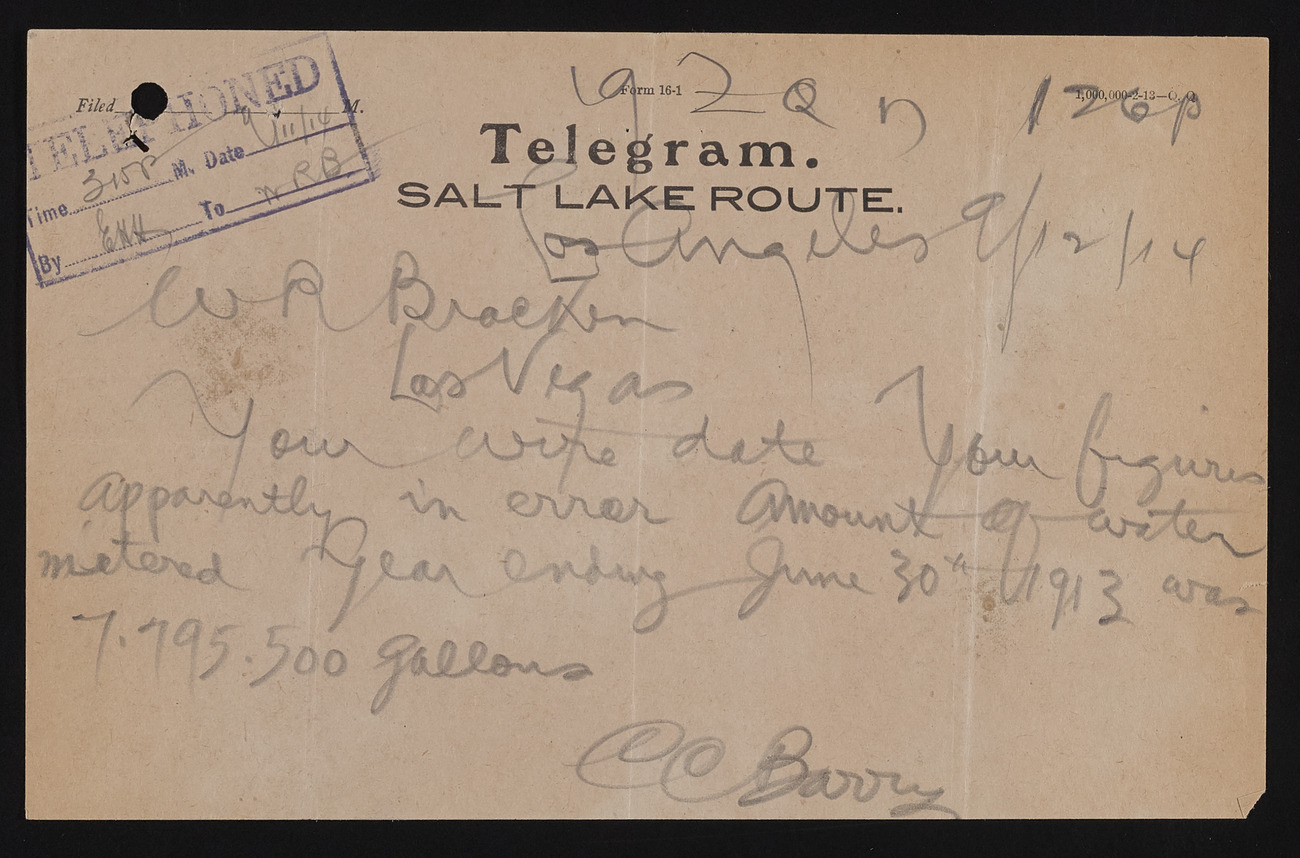 Filed M.
TELEPHONED
Time 315P M. Date 9/11/14
By To WRB
Form 16-1
1,000,000-2-13—O. Q.
19 2 Q 126p
Telegram.
SALT LAKE ROUTE.
Los Angeles 9/12/14
W R Bracken
Las Vegas
Your wire date Your figures
apparently in error Amount of water
metered year ending June 30th 1913 was
7.795.500 gallons
CC Barry